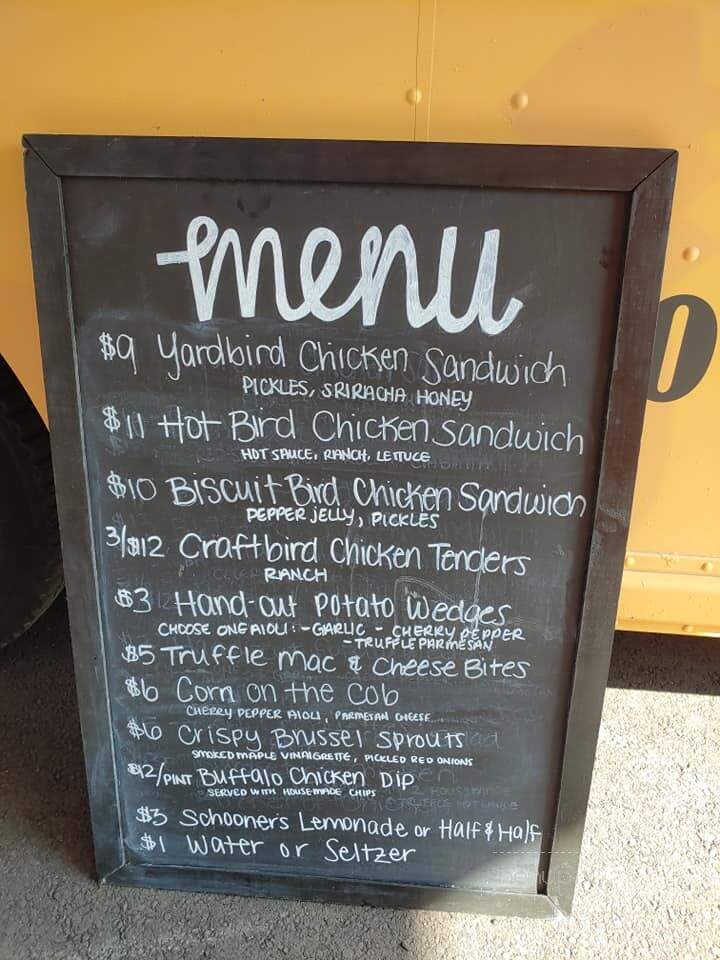 menu
$9 Yardbird Chicken Sandwich
PICKLES, SRIRACHA HONEY
$11 Hot Bird Chicken Sandwich
HOT SAUCE, RANCH, LETTUCE
$10 Biscuit Bird Chicken Sandwich
PEPPER JELLY, PICKLES
3/$12 Craftbird Chicken Tenders
RANCH
$3 Hand-cut Potato Wedges
CHOOSE ONE AIOLI: - GARLIC - CHERRY PEPPER
- TRUFFLE PARMESAN
$5 Truffle Mac & Cheese Bites
$6 Corn on the Cob
CHERRY PEPPER AIOLI, PARMESAN CHEESE
$6 Crispy Brussel Sprouts
SMOKED MAPLE VINAIGRETTE, PICKLED RED ONIONS
$12/PINT Buffalo Chicken Dip
SERVED WITH HOUSEMADE CHIPS
$3 Schooner's Lemonade or Half & Half
$1 Water or Seltzer